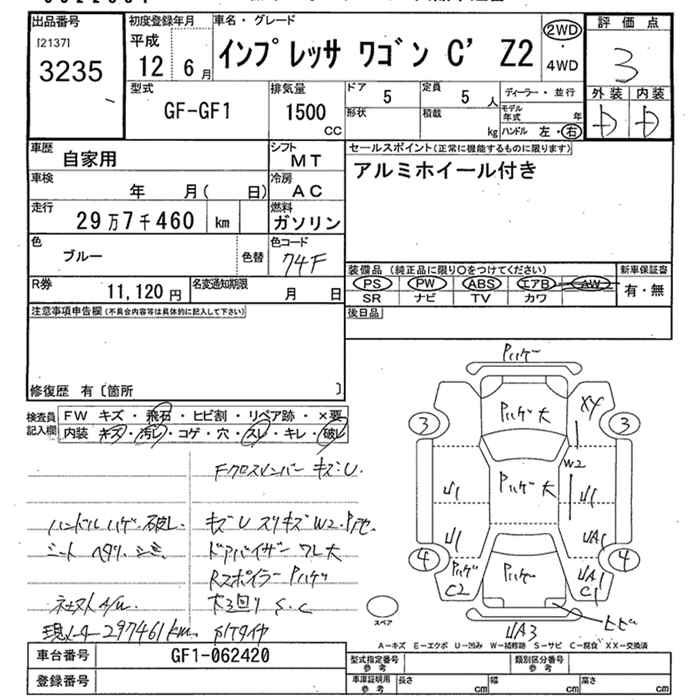 出品番号
[2137]
3235
初度登録年月
平成
12年6月
車名・グレード
インプレッサ ワゴン C' Z2
2WD
・
4WD
評価点
3
外装 内装
D D
型式
GF-GF1
排気量
1500
CC
ドア
5
定員
5人
形状
積載
kg
ディーラー・並行
モデル年式 年
ハンドル 左・右
車歴
自家用
シフト
MT
セールスポイント(正常に機能するものに限ります)
アルミホイール付き
車検
年 月( 日)
冷房
AC
走行
29万7千460 km
燃料
ガソリン
色
ブルー
色替
色コード
74F
装備品(純正品に限り○をつけてください)
PS PW ABS エアB AW
SR ナビ TV カワ
新車保証書
有・無
R券
11,120円
名変通知期限
月 日
後日品
注意事項申告欄(不具合内容等は具体的に記入して下さい)
修復歴 有〔箇所 〕
検査員記入欄
FW キズ・飛石・ヒビ割・リペア跡・×要
内装 キズ・汚レ・コゲ・穴・スレ・キレ・破レ
Fクロスメンバー キズU.
ハンドル ハゲ.破レ.
キズU スリキズ W2.
シート ヘタリ.シミ.
ドアバイザー ワレ大
Rスポイラー Pハゲ
下回り S.C
現メーター 297461km.
Pハゲ
Pハゲ大
XY
3
3
W2
Pハゲ大
U1
U1
U1
UA1
4
4
Pハゲ
C2
Pハゲ
UA1
C1
ヒビ
UA3
スペア
A−キズ E−エクボ U−凹み W−補修跡 S−サビ C−腐食 XX−交換済
車台番号
GF1-062420
登録番号
型式指定番号
参考
類別区分番号
参考
車庫証明用
参考
長さ cm
幅 cm
高さ cm